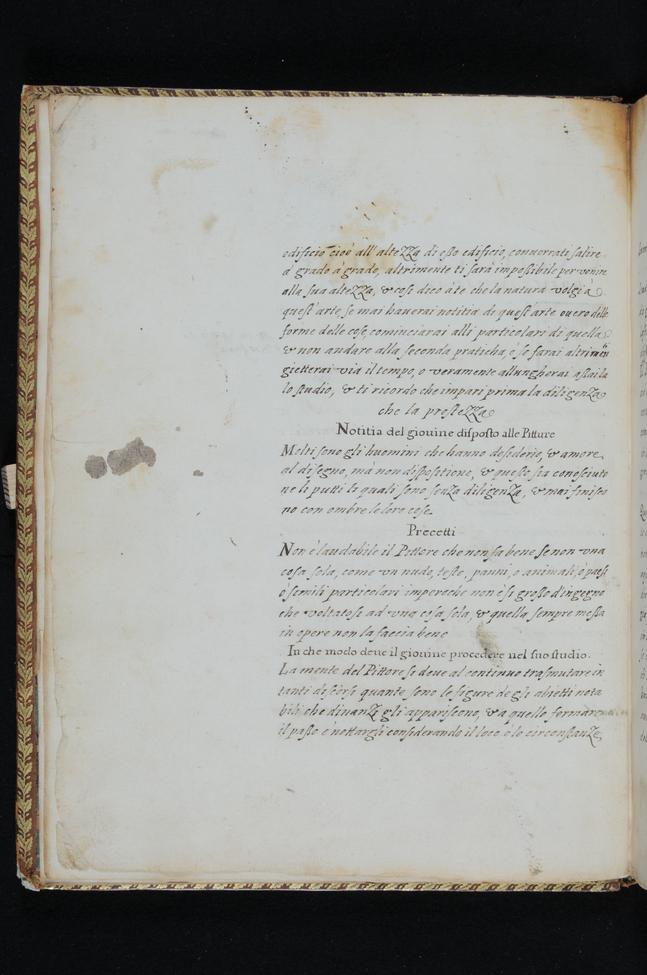 edificio cioè all'altezza di esso edificio, conuerrati salire
à grado à grado, altrimente ti sarà impossibile peruenire
alla sua altezza, & cosi dico à te che la natura volgi à
quest'arte, se mai hauerai notitia di quest'arte ouero delle
forme delle cose, cominciarai alli particolari di quella
& non andare alla seconda praticha, e se farai altrimẽti
gietterai via il tempo, o veramente allungherai assai la
lo studio, & ti ricordo che impari prima la diligenza
che la prestezza
Notitia del giouine disposto alle Pitture
Molti sono gli huomini che hanno desiderio, & amore
al disegno, mà non dispositione, & questo sia conosciuto
ne li putti li quali sono senza diligenza, & mai finisco
no con ombre le lore cose.
Precetti
Non è laudabile il Pittore che non fa bene se non vna
cosa sola, come vn nudo, teste, panni, o animali, o paesi
o simili particolari imperoche non è si grosso d'ingegno
che voltatosi ad vna cosa sola, & quella sempre messa
in opere non la faccia bene
In che modo deue il giouine procedere nel suo studio.
La mente del Pittore si deue al continuo trasmutare in
tanti discorsi quante sono le figure de gli obietti nota
bili che dinanzi gli appariscono, & a quello formare
il passo e nottargli considerando il loco e lo circonstanze